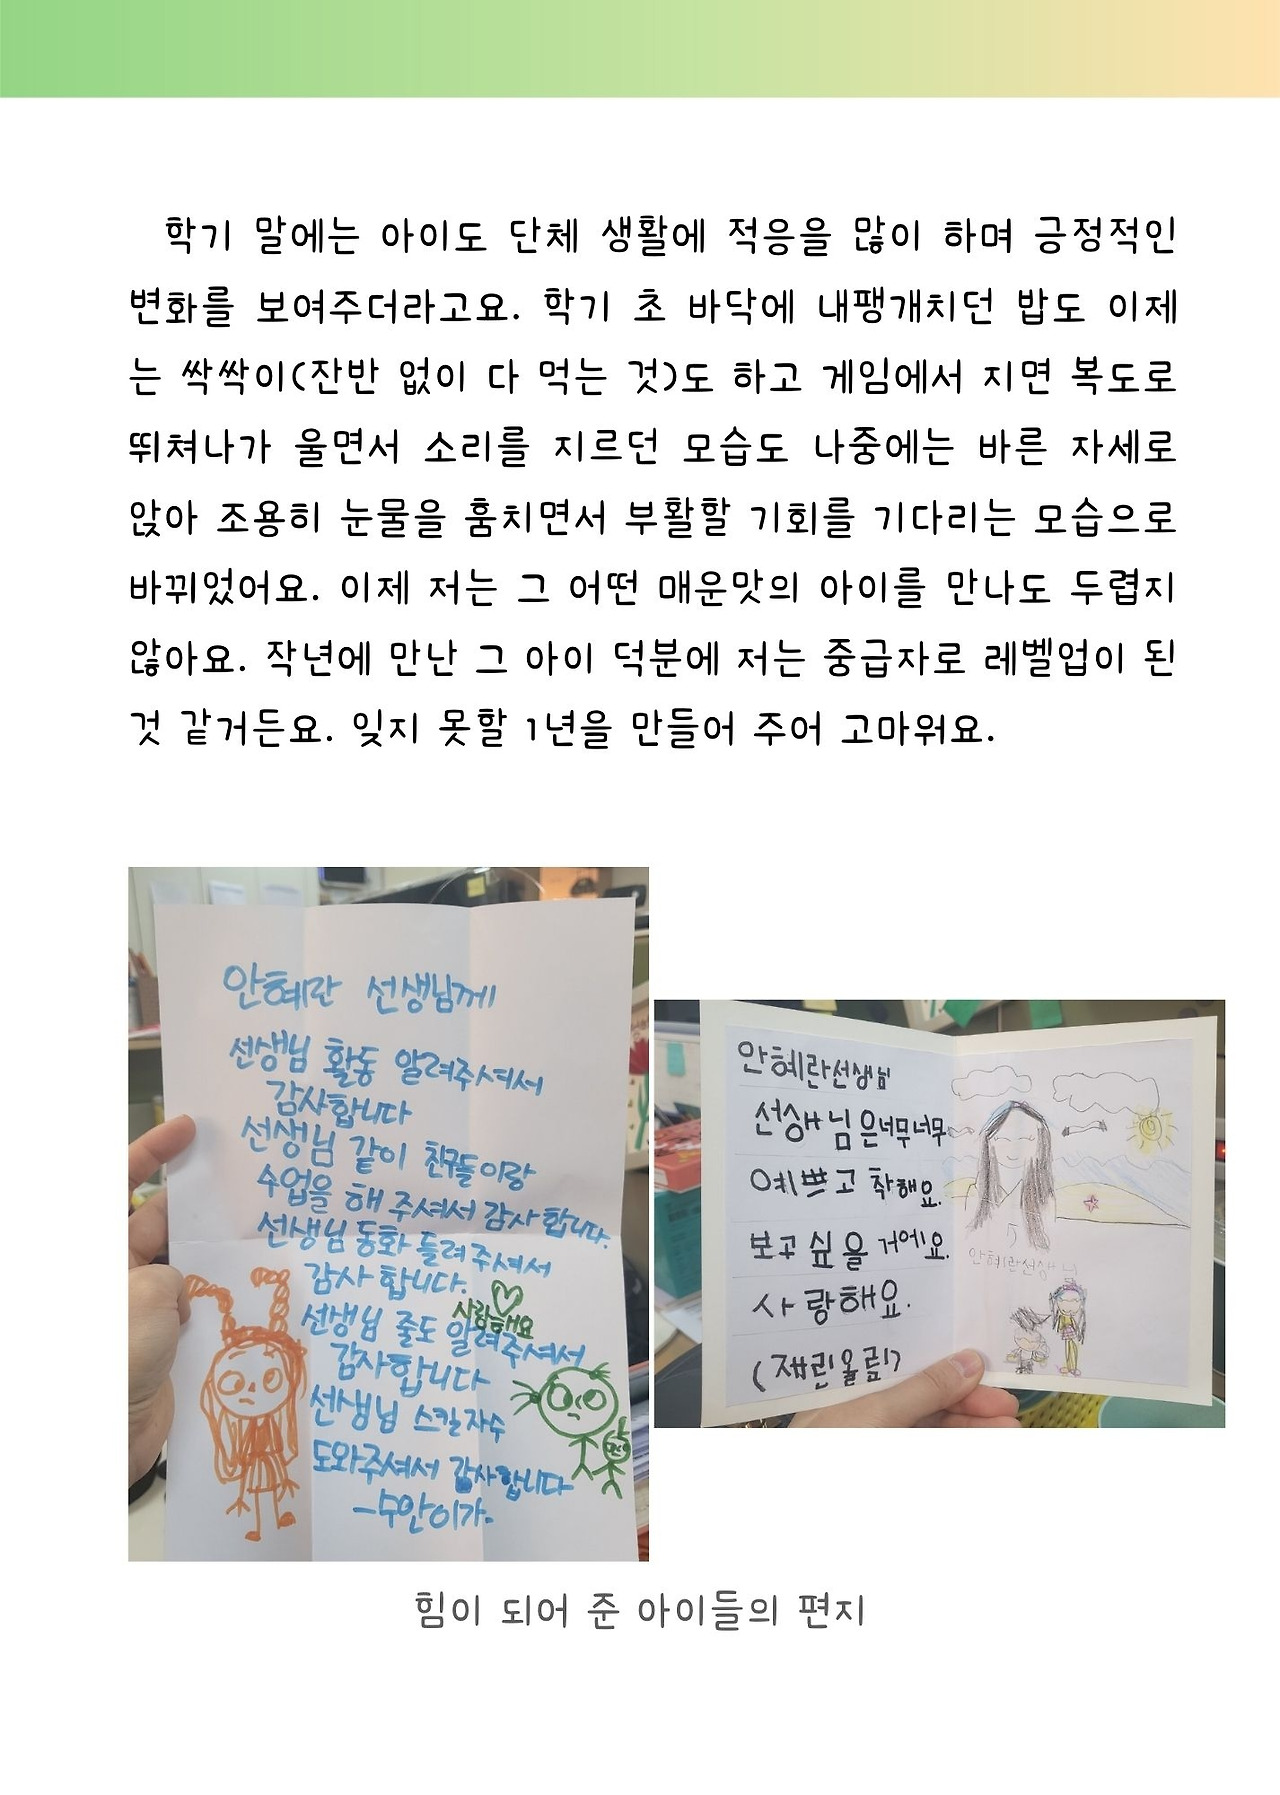 학기 말에는 아이도 단체 생활에 적응을 많이 하며 긍정적인
변화를 보여주더라고요. 학기 초 바닥에 내팽개치던 밥도 이제
는 싹싹이(잔반 없이 다 먹는 것)도 하고 게임에서 지면 복도로
뛰쳐나가 울면서 소리를 지르던 모습도 나중에는 바른 자세로
앉아 조용히 눈물을 훔치면서 부활할 기회를 기다리는 모습으로
바뀌었어요. 이제 저는 그 어떤 매운맛의 아이를 만나도 두렵지
않아요. 작년에 만난 그 아이 덕분에 저는 중급자로 레벨업이 된
것 같거든요. 잊지 못할 1년을 만들어 주어 고마워요.
안혜란 선생님께
선생님 활동 알려주셔서
감사합니다
선생님 같이 친구들이랑
수업을 해 주셔서 감사합니다.
선생님 동화 들려주셔서
감사 합니다.
사랑해요
선생님 줄도 알려주셔서
감사합니다
선생님 스킬자수
도와주셔서 감사합니다
-수안이가.
안혜란선생님
선생님은너무너무
예쁘고 착해요.
보고싶을 거에요.
사랑해요.
(재린올림)
안혜란선생님
힘이 되어 준 아이들의 편지